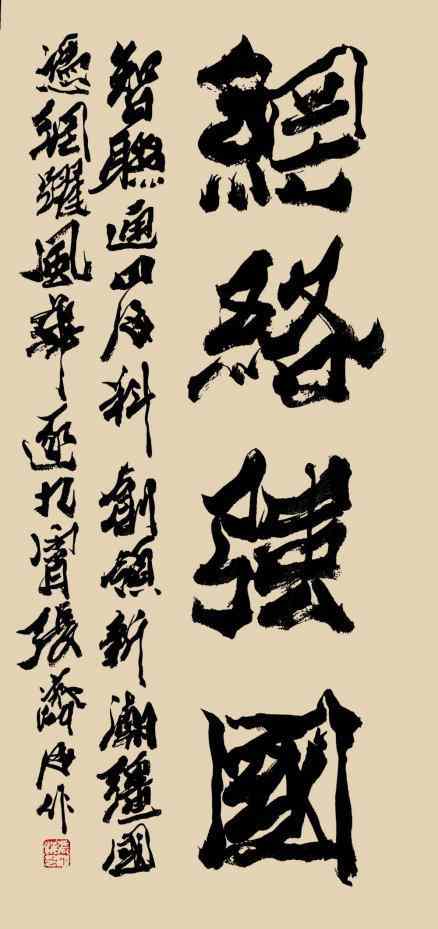 網絡強國
智聯通四海科創領新潮彊國
憑網耀風華逐九霄張濟海作